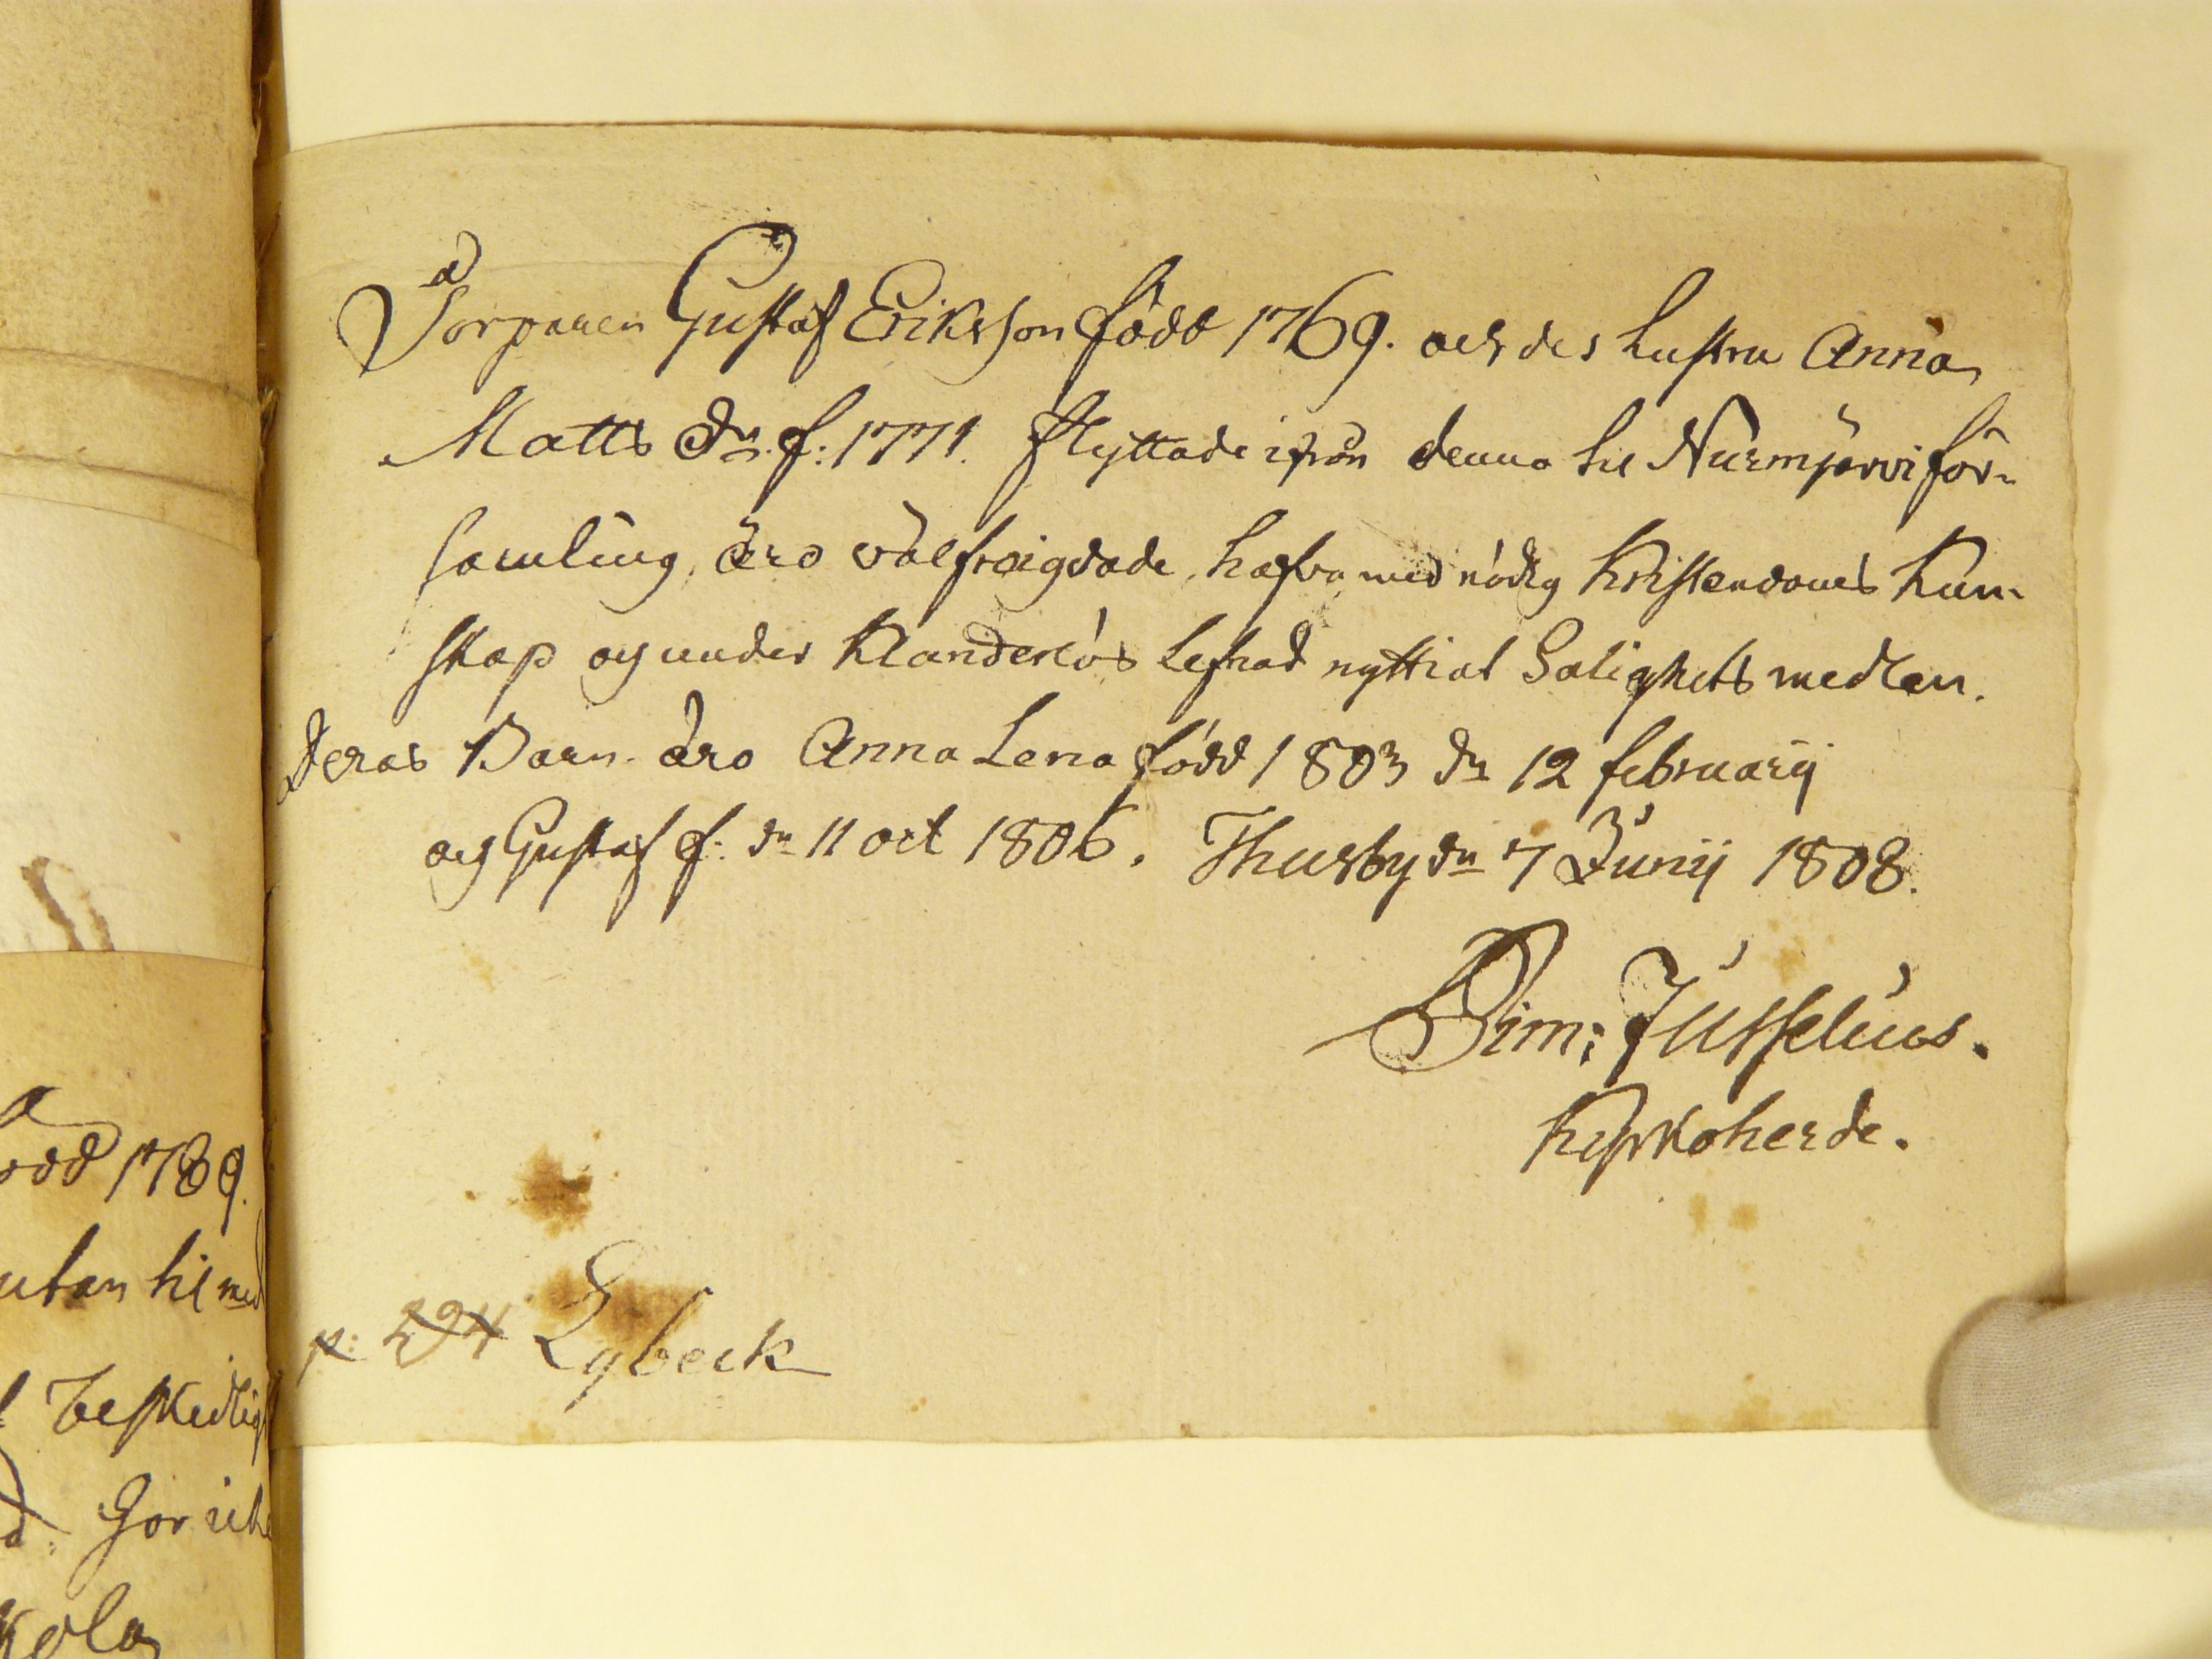 Torparen Gustaf Eriksson född 1769. och des hustru Anna
Matts dr. f: 1771. flyttade ifrån denna til Nurmjervi för-
samling, äro välfreigdade, hafva med nödig Kristendoms Kun-
skap og under Klanderlös Lefnad nyttiat Salighets medlen.
Deras Barn äro Anna Lena född 1803 dn 12 februarij
og Gustaf f: dn 11 oct 1806. Thusby dn 7 Junij 1808.
Sim: Jusselius.
Kyrkoherde.
p: 294 Lybeck
odd 1789.
utan til med
beskedlig
Gör icke